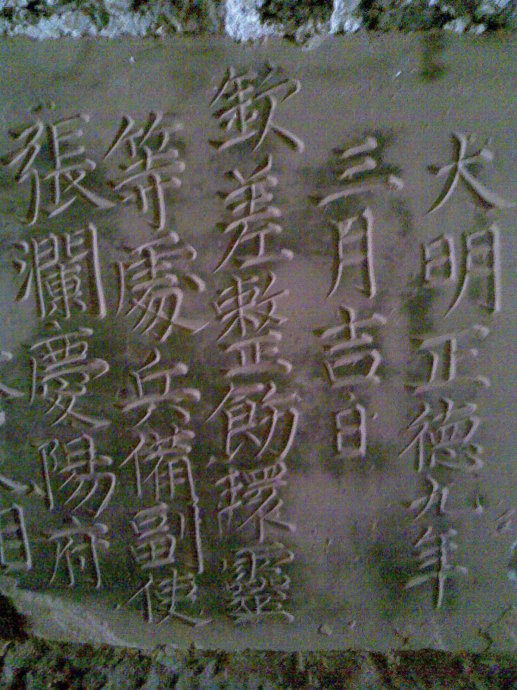 大明正德九年
三月吉日
欽差整飭環靈
等處兵備副使
張瀾慶陽府